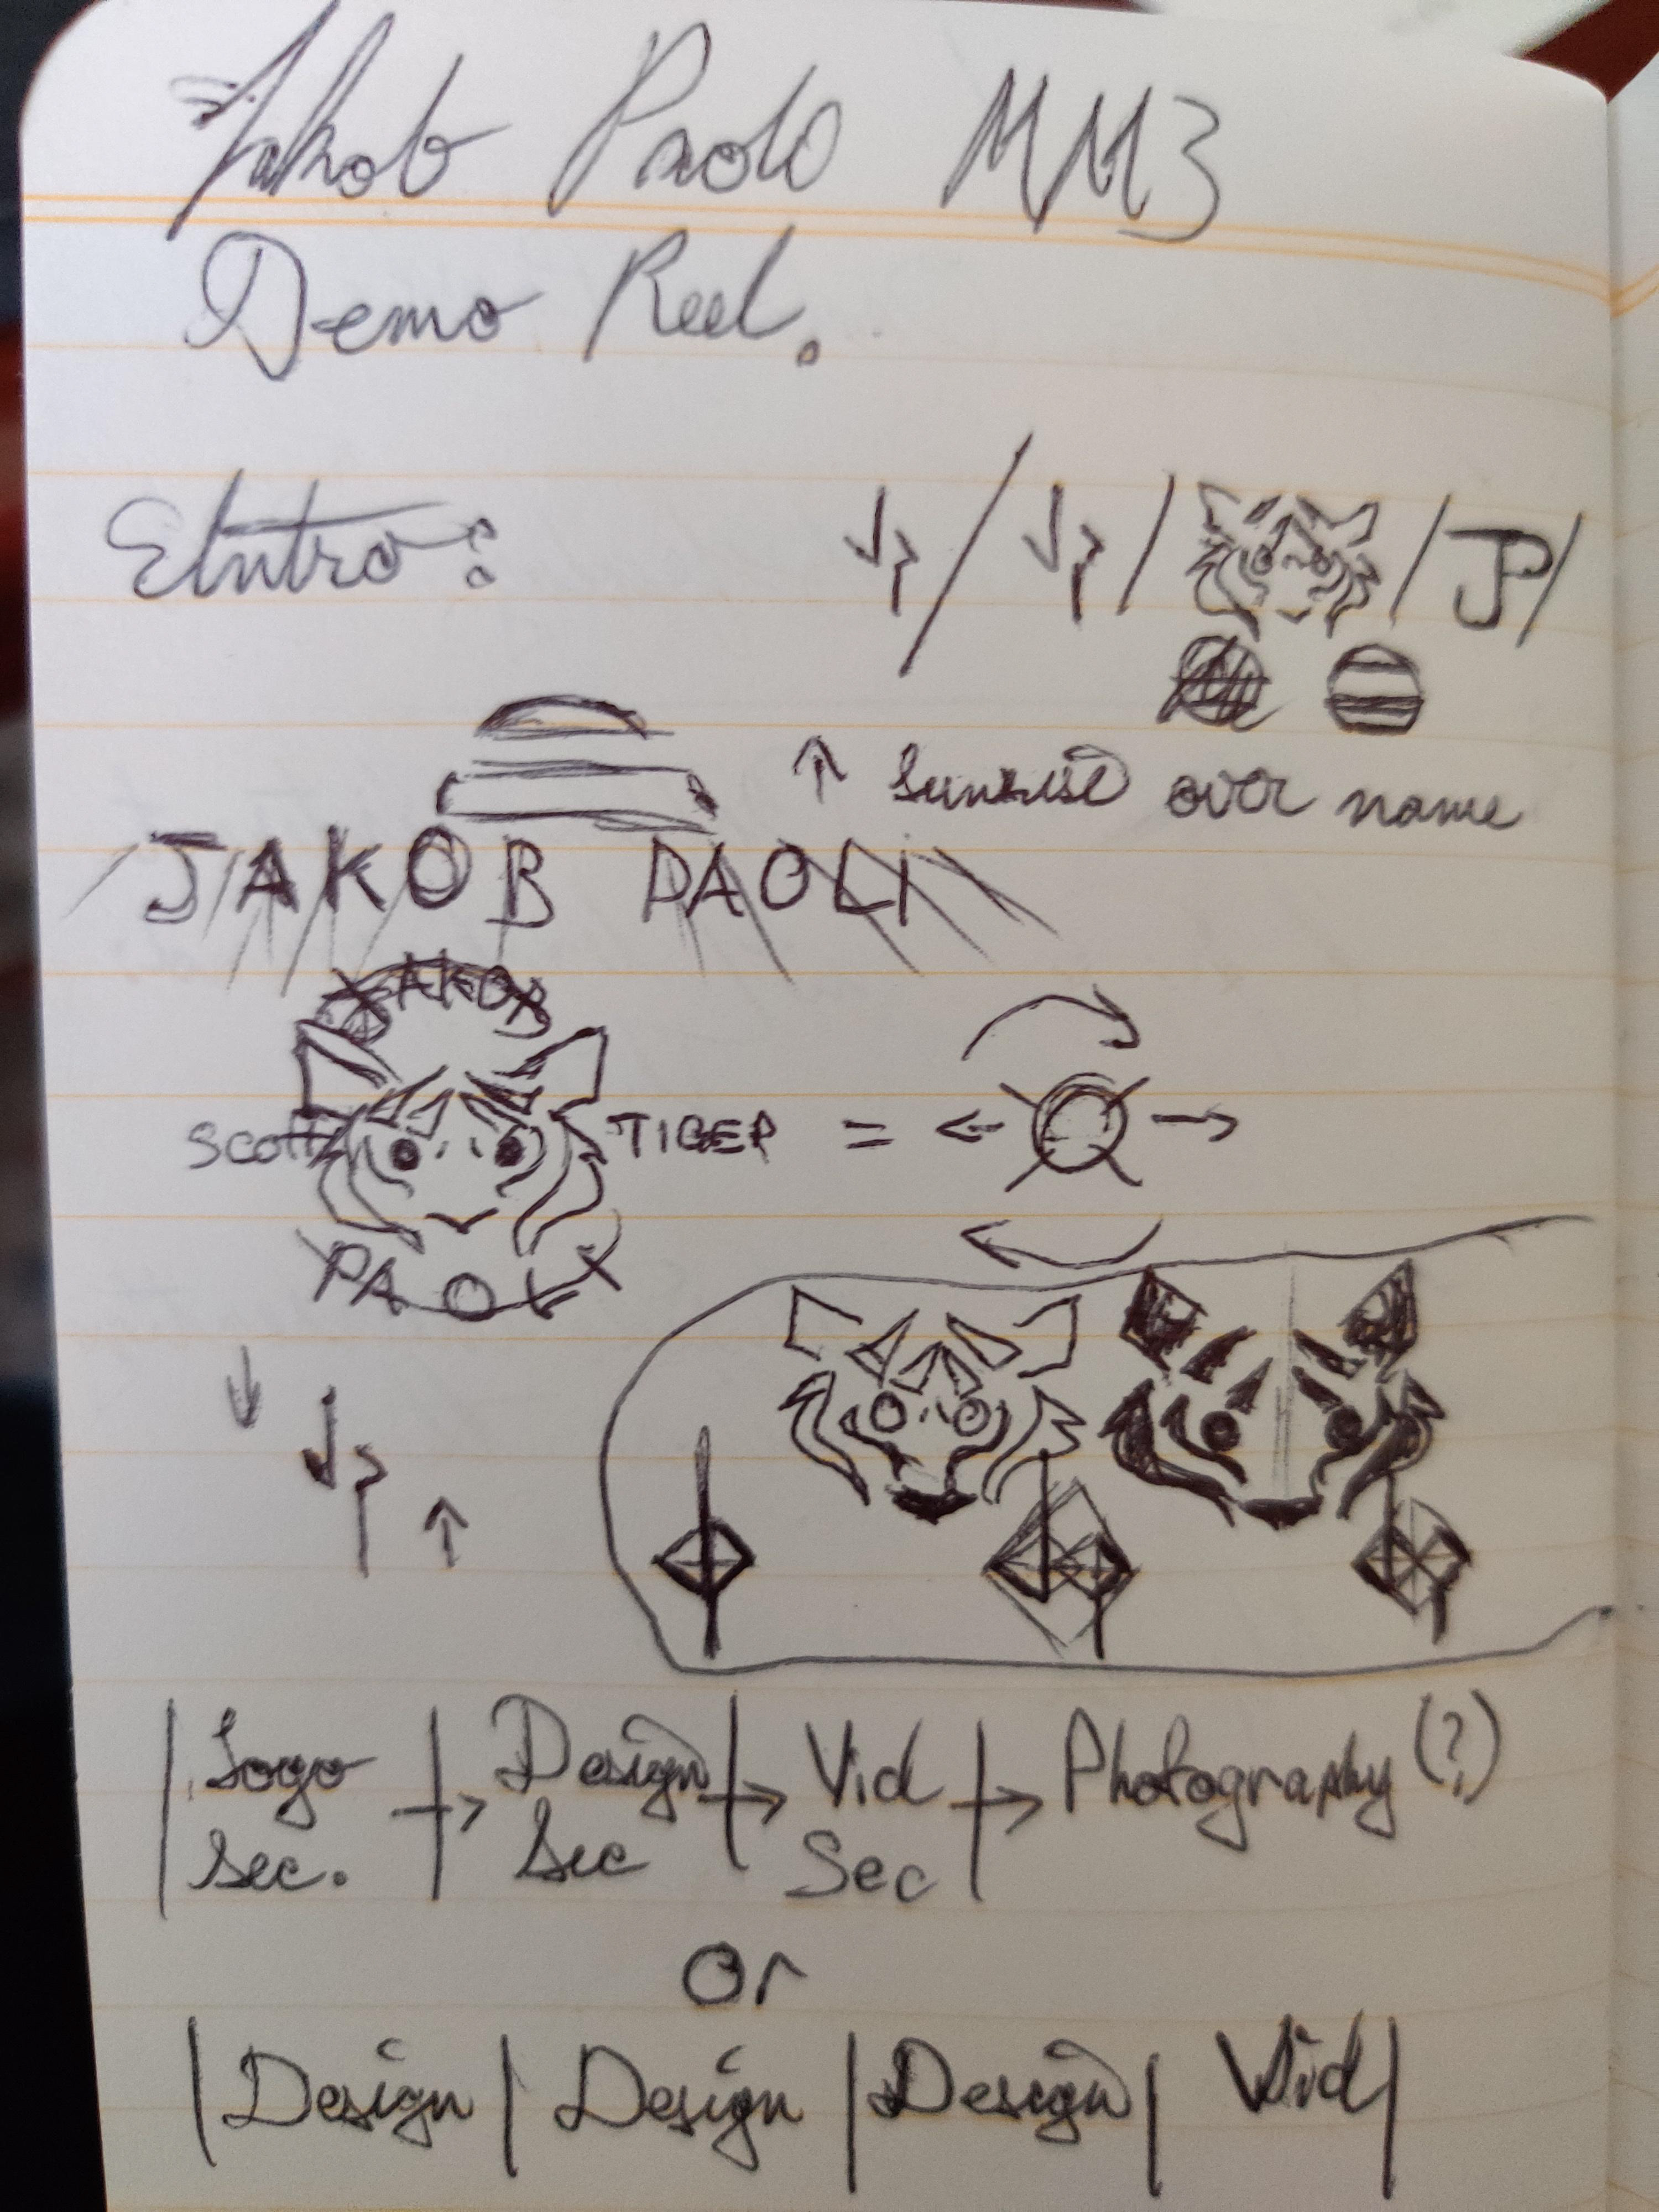 Jakob Paolo MM3
Demo Reel.
Intro:
JP
↑ Sunrise over name
JAKOB PAOLI
JAKOB
Scott TIGER =
PAOLI
Logo Sec. → Design Sec → Vid Sec → Photography (?)
Or
| Design | Design | Design | Vid |